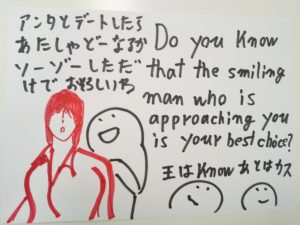 アンタとデートしたら
あたしゃどーなるか
ソーゾーしただ
けでおそろしいわ
Do you know
that the smiling
man who is
approaching you
is your best choice?
王はKnowあとはカス